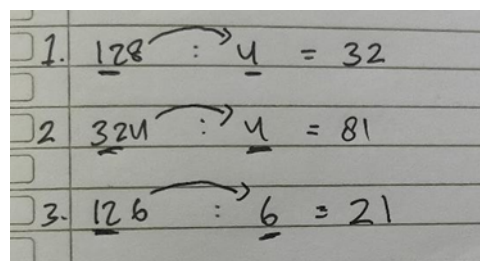 1. 128 : 4 = 32
2 324 : 4 = 81
3. 126 : 6 = 21